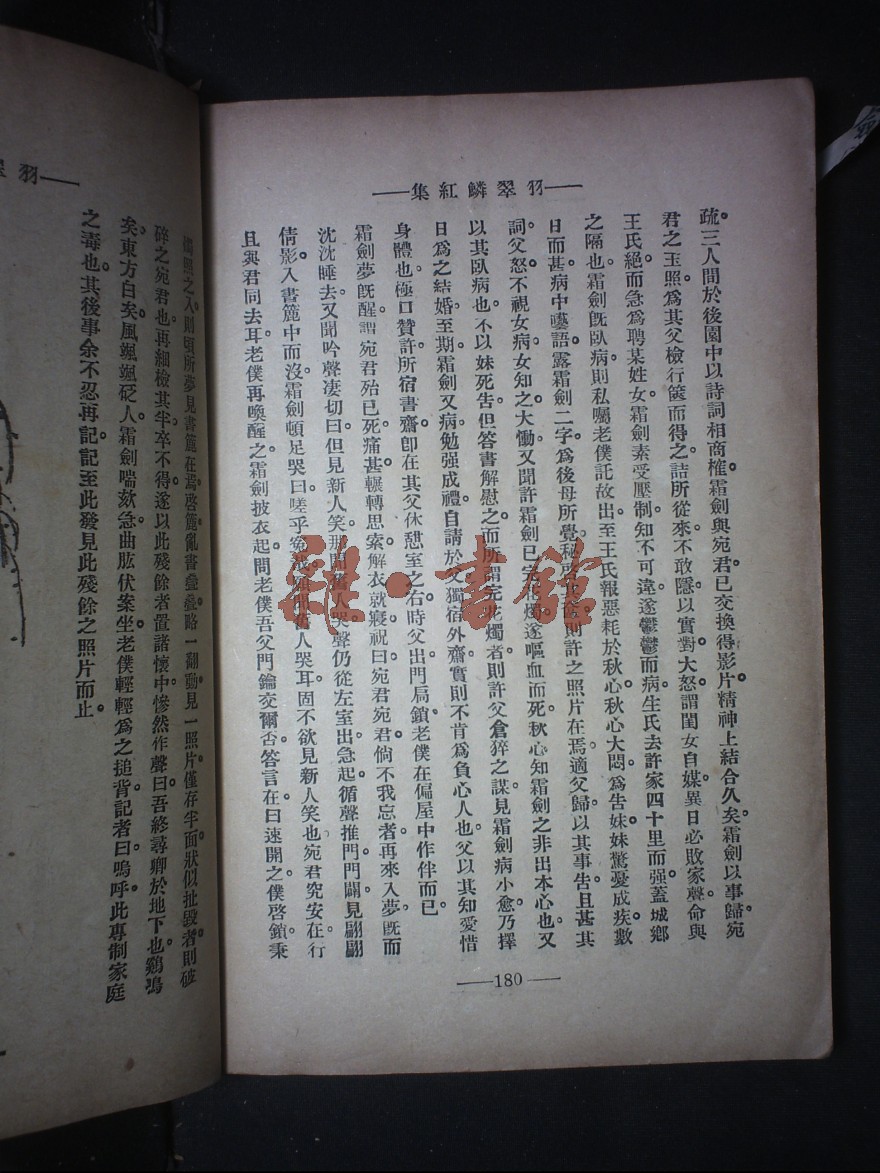 集紅鱗翠羽
疏。三人間於後園中以詩詞相商榷。霜劍與宛君已交換得影片。精神上結合久矣。霜劍以事歸。宛
君之玉照爲其父檢行篋而得之。詰所從來。不敢隱。以實對。大怒。謂閨女自媒。異日必敗家聲。命與
王氏絕。而急爲聘某姓女。霜劍素受壓制。知不可違。遂鬱鬱而病。生氏去許家四十里而强。蓋城鄉
之隔也。霜劍旣臥病。則私囑老僕託故出。至王氏報惡耗於秋心。秋心大悶。爲告妹。妹驚憂成疾。數
日而甚。病中囈語。露霜劍二字。爲後母所覺。私啓其篋。則許之照片在焉。適父歸。以其事告。且甚其
詞。父怒。不視女病。女知之。大慟。又聞許霜劍已完花燭。遂嘔血而死。秋心知霜劍之非出本心也。又
以其臥病也。不以妹死告。但答書解慰之。而所謂完花燭者。則許父倉猝之謀。見霜劍病小愈。乃擇
日爲之結婚。至期。霜劍又病。勉强成禮。自請於父。獨宿外齋。實則不肯爲負心人也。父以其知愛惜
身體也。極口贊許。所宿書齋。卽在其父休憩室之右。時父出門。扃鎖。老僕在偏屋中作伴而已。
霜劍夢旣醒。謂宛君殆已死。痛甚。輾轉思索。解衣就寢。祝曰。宛君宛君。倘不我忘者。再來入夢。旣而
沈沈睡去。又聞吟聲凄切曰。但見新人笑。那聞舊人哭。聲仍從左室出。急起。循聲推門。門闢。見翩翩
倩影入書簏中而沒。霜劍頓足哭曰。嗟乎冤哉。願聞舊人哭耳。固不欲見新人笑也。宛君究安在。行
且與君同去耳。老僕再喚醒之。霜劍披衣起。問老僕。吾父門鑰交爾否。答言在。曰速開之。僕啓鎖秉
燭照之。入則頃所夢見書簏在焉。啓簏。亂書叠叠。略一翻動。見一照片。僅存半面。狀似扯毀者。則破
碎之宛君也。再細檢其半。卒不得。遂以此殘餘者置諸懷中。慘然作聲曰。吾終尋卿於地下也。鷄鳴
矣。東方白矣。風颯颯砭人。霜劍喘欬急。曲肱伏案坐。老僕輕輕爲之搥背。記者曰。嗚呼。此專制家庭
之毒也。其後事余不忍再記。記至此發見此殘餘之照片而止。
180
翠羽
雜·書館